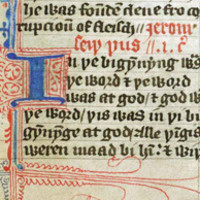 he was founden
rupcioun of fleisch
In þe bigynnyng w
þe word & þe word
was at god / & god w
þe word / þis was in þe bi
gynnynge at god / alle þingis
weren maad bi h